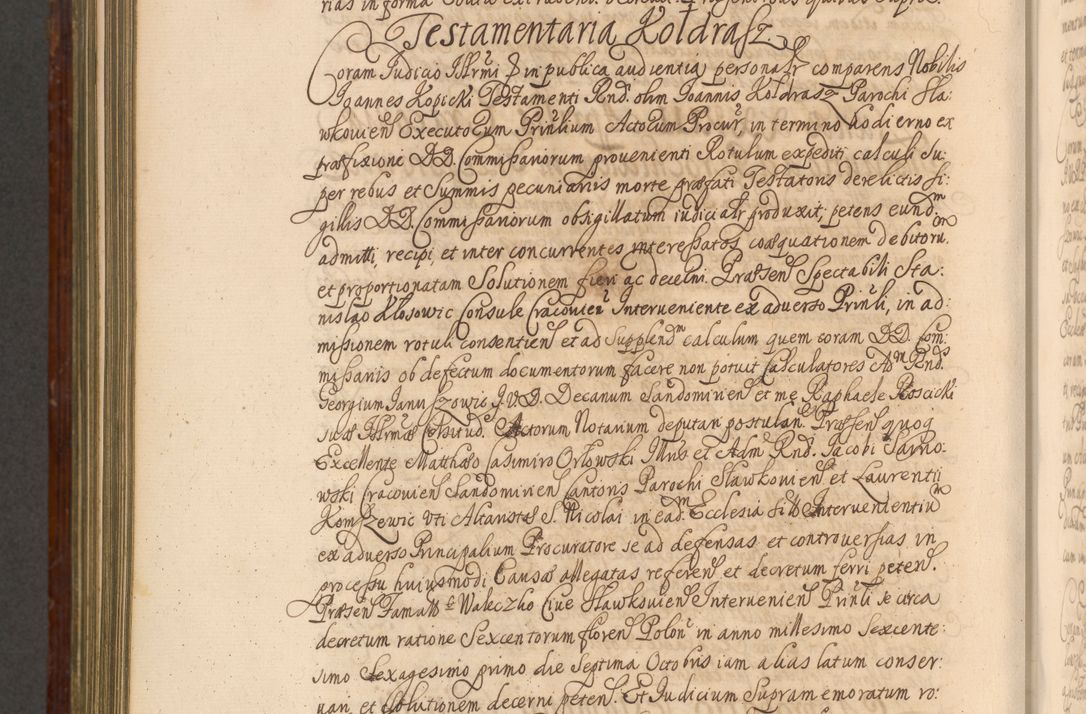 Testamentaria Kołdrasz
Coram Iudicio Illrmi D in publica audientia personalr comparens Nobilis
Joannes Kopicki Testamenti Rnd. olim Joannis Kołdrasz Parochi Sla:
wkovien Executorum Prinlium Actorum Procur, in termino hodierno ex
præfixione DD. Commissariorum provenienti Rotulum expediti calculi Su:
per rebus et Summis pecuniariis morte præfati Testatoris derelictis si:
gillis DD. Commissariorum obsigillatum iudicialr produxit, petens eundm
admitti, recipi, et inter concurrentes interessatos coæquationem debitorum.
et proportionatam Solutionem fieri ac decerni. Præsen Spectabili Sta:
nislao Kłosowic Consule Cracovien Interveniente ex adverso Prinli, in ad:
missionem rotuli consentien et ad Supplendm calculum quem coram DD. Com:
missariis ob defectum documentorum facere non potuit Calculatores Adm Rnds
Georgium Januszowic J.V.D. Decanum Sandomirien et me Raphaele Roscicki
suæ Illrmæ Celsitud. Actorum Notarium deputari postulan. Præsen quoq
Excellente Matthæo Casimiro Orłowski Illris et Adm Rnd. Jacobi Sarno:
wski Cracovien Sandomirien Cantoris Parochi Slawkovien et Laurentii
Komszewic uti Altaristæ S. Nicolai in eadm Ecclesia sibi Intervenientium
ex adverso Principalium Procuratore se ad defensas et controversias in
processu huiusmodi Causæ allegatas referen et decretum ferri peten.
Præsen Famato Waleczko Cive Slawkovien Intervenien Prinli se circa
decretum ratione Sexcentorum floren Polon in anno millesimo Sexcente:
simo Sexagesimo primo die Septima Octobris iam alias latum conser:
vari, et Absolutionem decerni peten. Et Iudicium Supramemoratum ro: